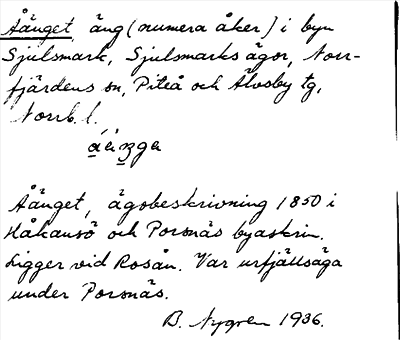 Åänget, äng (numera åker) i byn
Sjulsmark, Sjulsmarks ägor, Norr-
fjärdens sn, Piteå och Älvsby tg,
Norrb. l.
Åänget, ägobeskrivning 1850 i
Håkansö och Porsnäs byaskrin.
Ligger vid Rosån. Var urfjällsäga
under Porsnäs.
B. Nygren 1936.